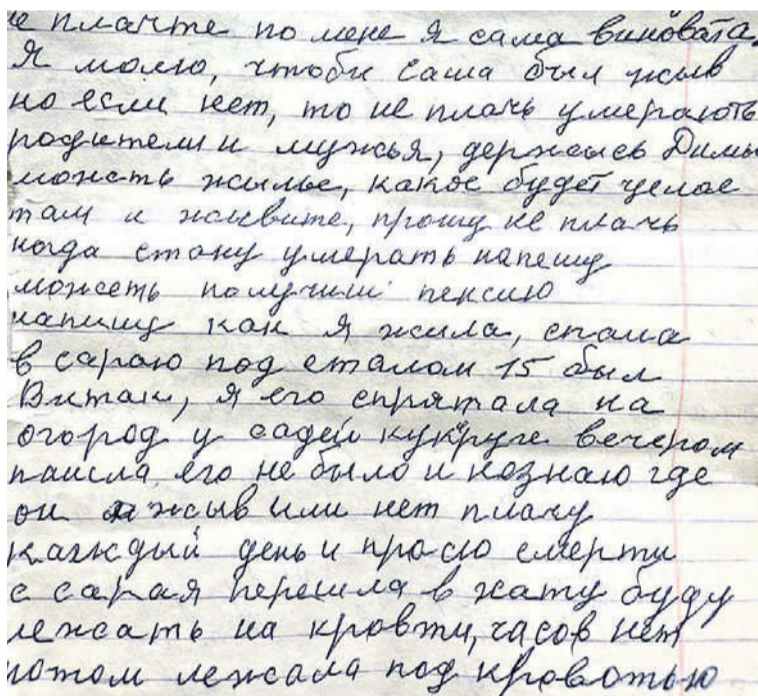 не плачте по мене я сама виновата.
Я молю, чтоби Саша был жыв
но если нет, то не плачь умерають
родители и мужья, держысь Димы
можеть жылье, какое будет целое
там и жывите, прошу не плачь
когда стану умерать напешу
можеть получиш пексию
напишу как я жила, спала
в сараю под сталом 15 был
Виктак, я его спрятала на
огород у садей кукруге вечером
пашла его не было и незнаю где
он жыв или нет плачу
кагждый день и прасю смерти
с сарая перешла в хату буду
лежать на кровти, часов нет
потом лежала под кровотью